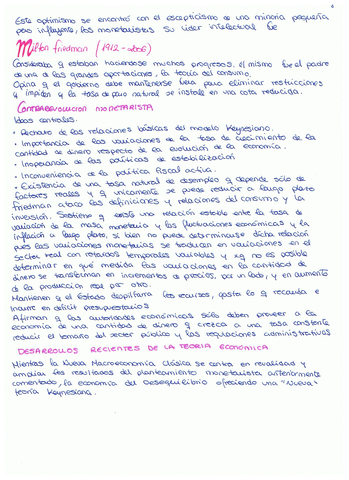 6
Este optimismo se encontró con el escepticismo de una minoria pequeña
pero influyente, los monetaristas su líder intelectual fue
Milton friedman (1912-2006)
Consideraba q estaban haciendose muchos progresos, él mismo fue el padre
de una de las grandes aportaciones, la teoría del consumo.
Opina q el gobierno debe mantenerse para eliminar restricciones
y impiden q la tasa de paro natural se instale en una cota reducida.
CONTRAREVOLUCION MONETARISTA
Ideas centrales.
• Rechazo de las relaciones básicas del modelo Keynesiano.
• Importancia de las variaciones de la tasa de crecimiento de la
cantidad de dinero respecto de la evolución de la economía.
• Inoperancia de las políticas de estabilización
• Inconveniencia de la política fiscal activa.
• Existencia de una tasa natural de desempleo q depende sólo de
factores reales y q unicamente se puede reducir a largo plazo
Friedman ataca las definiciones y relaciones del consumo y la
inversión. Sostiene q existe una relación estable entre la tasa de
variación de la masa monetaria y las fluctuaciones económicas y la
inflación a largo plazo, si bien no puede determinarse dicha relación
pues las variaciones monetarias se traducen en variaciones en el
sector real con retardos temporales variables y xq no es posible
determinar en qué medida las variaciones en la cantidad de
dinero se transforman en incrementos de precios, por un lado, y en aumento
de la producción real por otro.
Mantienen q el Estado despilfarra los recursos, gasta lo q recauda e
incurre en déficit presupuestarios
Afirman q las autoridades económicas sólo deben proveer a la
economía de una cantidad de dinero q crezca a una tasa constante
reducir el tamaño del sector público y las regulaciones administrativas
DESARROLLOS RECIENTES DE LA TEORIA ECONOMICA
Mientras la Nueva Macroeconomía Clásica se centra en revalidad y
ampliar los resultados del planteamiento monetarista anteriormente
comentado, la economía del Desequilibrio ofreciendo una "Nueva"
teoría Keynesiana.